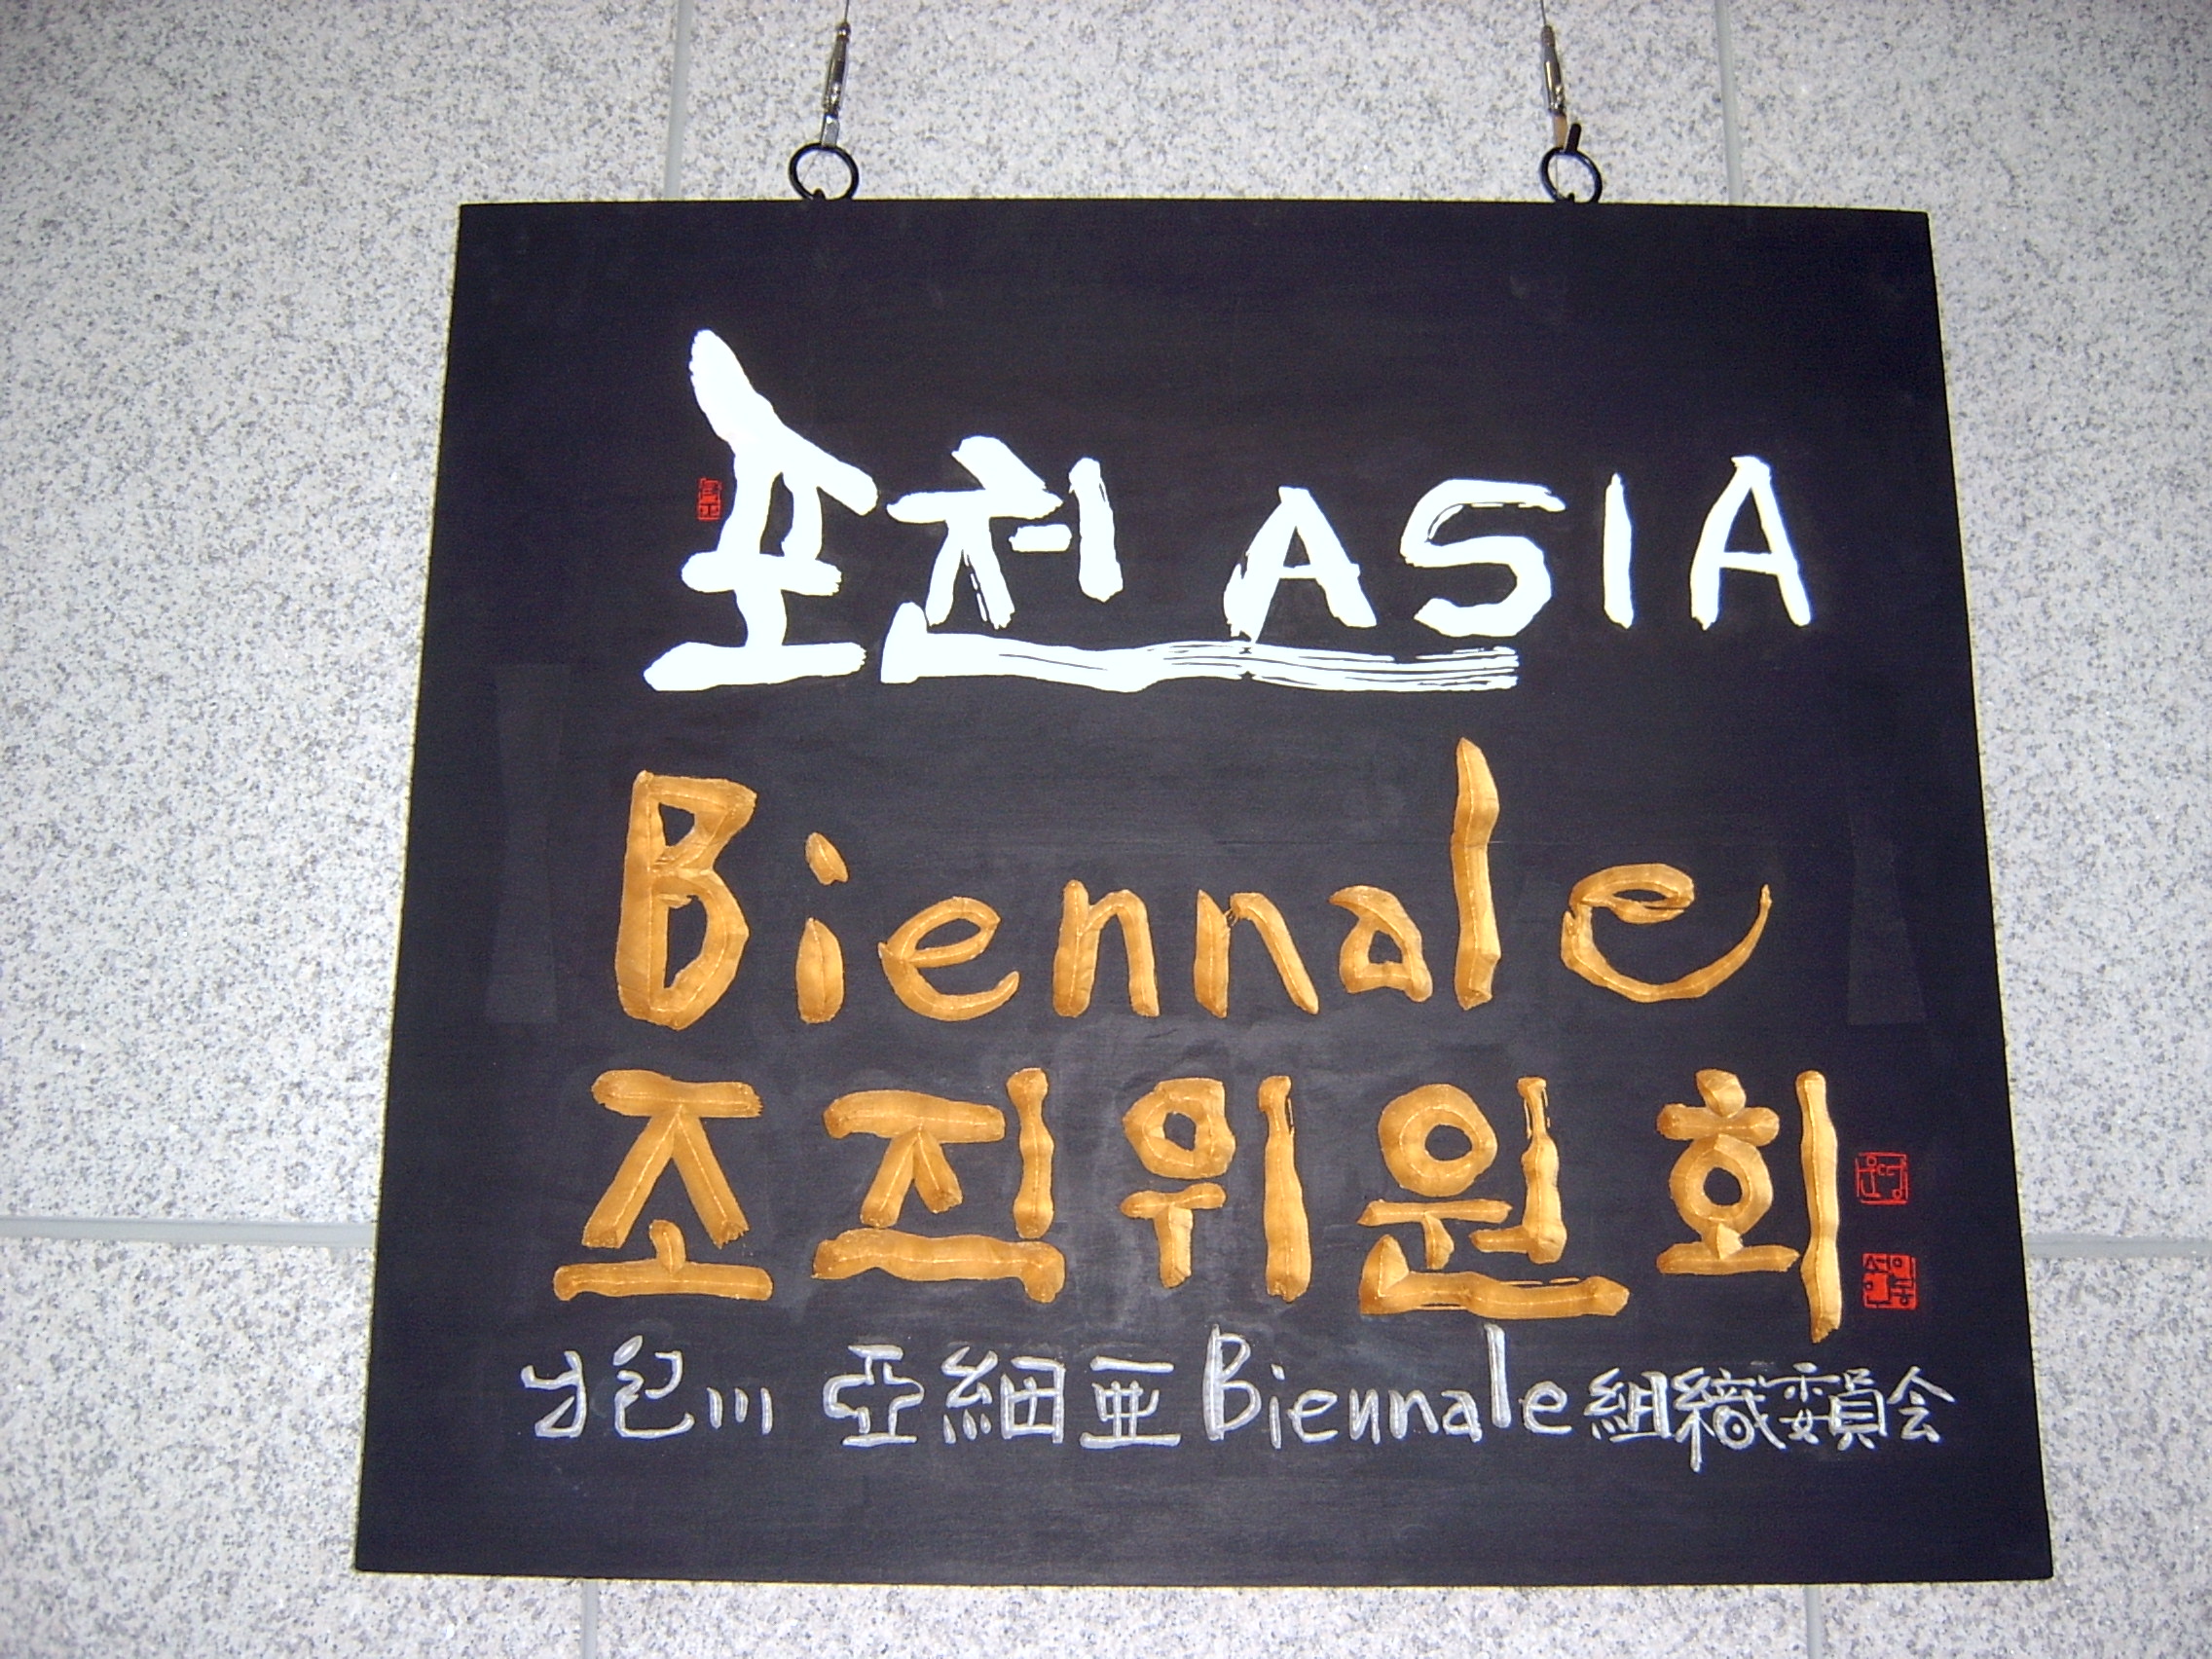 포천 ASIA
Biennale
조직위원회
抱川 亞細亜 Biennale 組織委員会